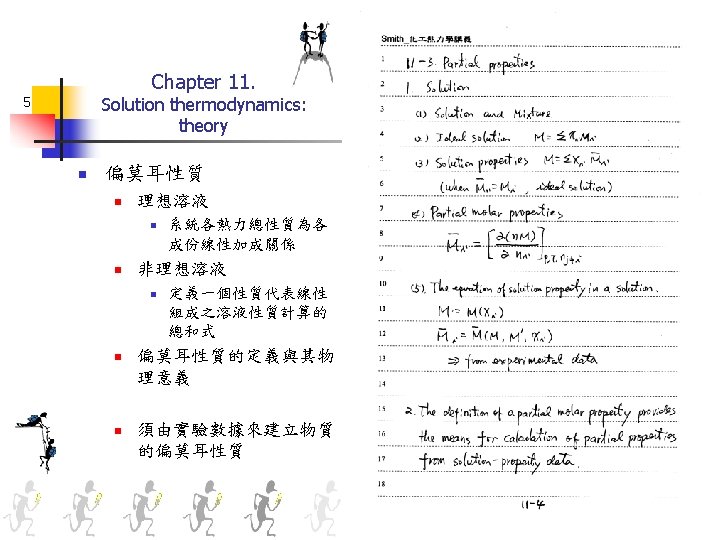 Chapter 11.
5
Solution thermodynamics:
theory
偏莫耳性質
理想溶液
系統各熱力總性質為各
成份線性加成關係
非理想溶液
定義一個性質代表線性
組成之溶液性質計算的
總和式
偏莫耳性質的定義與其物
理意義
須由實驗數據來建立物質
的偏莫耳性質
Smith_化工熱力學講義
1 11-3. Partial properties
2 1. Solution
3 (1) Solution and Mixture
4 (2) Ideal solution M=Σxᵢ Mᵢ
5 (3) Solution properties M=Σxᵢ M̄ᵢ
6 (when M̄ᵢ=Mᵢ, ideal solution)
7 (4) Partial molar properties
8 M̄ᵢ=[∂(nM)/∂nᵢ]P,T,nj≠i
9
10 (5). The equation of solution property in a solution.
11 M=M(xᵢ)
12 M̄ᵢ=M̄(M, M', xᵢ)
13 ⇒ from experimental data
14
15 2. The definition of a partial molar property provides
16 the means for calculation of partial properties
17 from solution-property data.
18
11-4